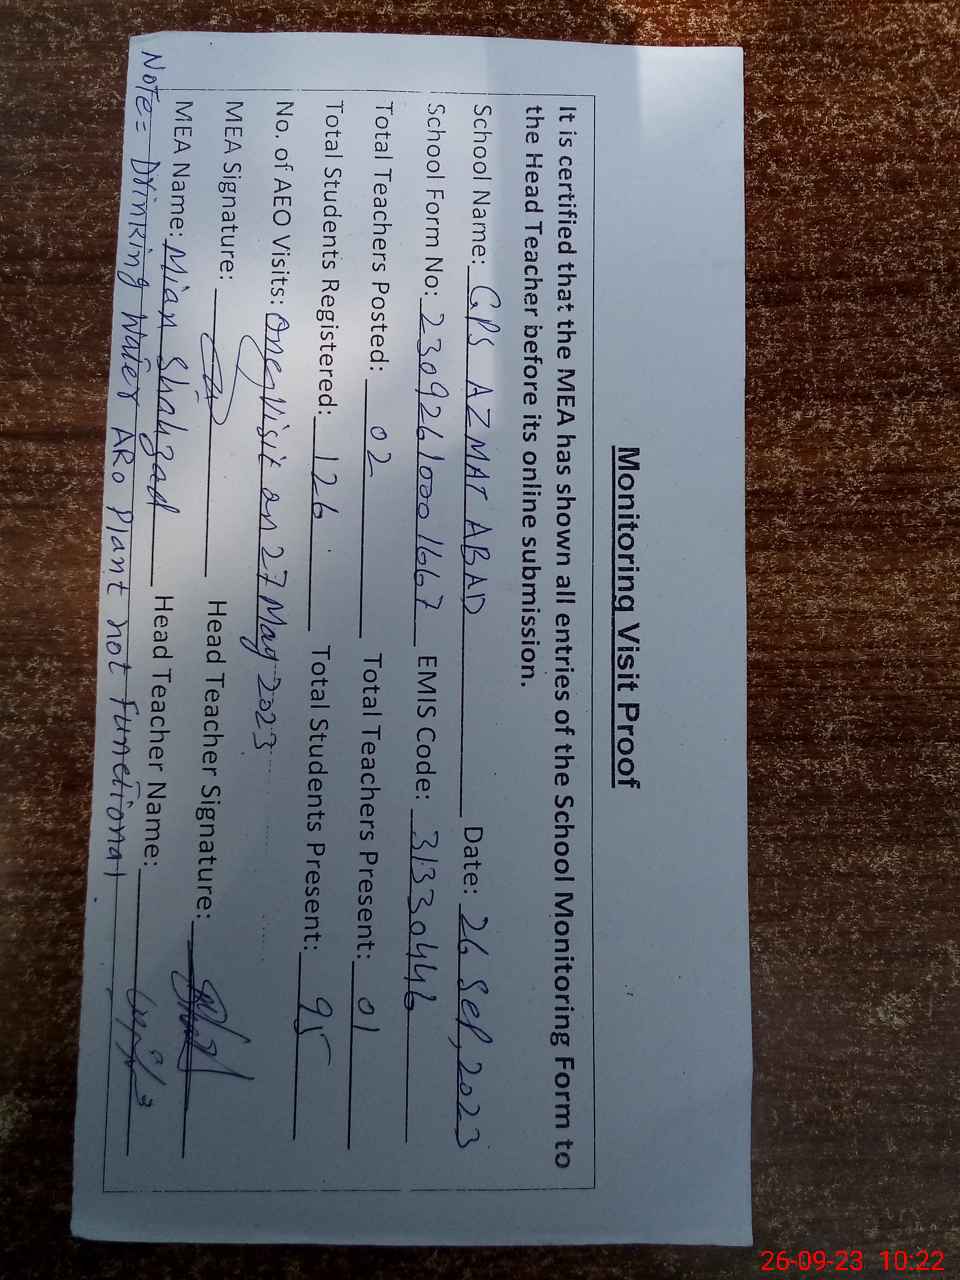 Monitoring Visit Proof
It is certified that the MEA has shown all entries of the School Monitoring Form to
the Head Teacher before its online submission.
School Name: GPS AZMAT ABAD Date: 26 Sep, 2023
School Form No: 23092610001667 EMIS Code: 31330446
Total Teachers Posted: 02 Total Teachers Present: 01
Total Students Registered: 126 Total Students Present: 95
No. of AEO Visits: One visit on 27 May 2023
MEA Signature: Head Teacher Signature:
MEA Name: Mian Shahzad Head Teacher Name:
Note= Drinking Water ARo Plant not Functional
26-09-23 10:22